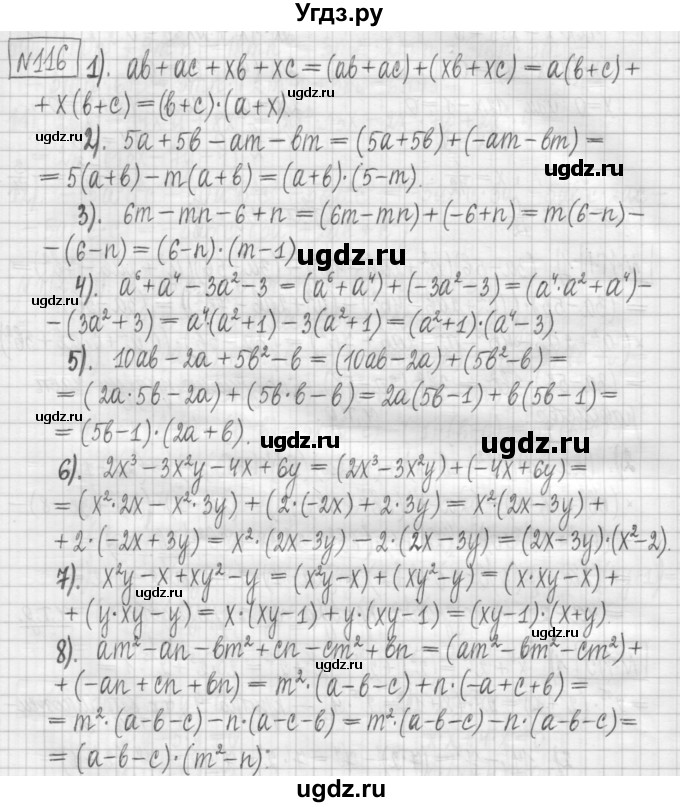 Угдз.ру
№116 1). ab + ac + xb + xc = (ab + ac) + (xb + xc) = a(b+c) +
+ x(b+c) = (b+c)·(a+x).
ugdz.ru
ugdz.ru
2). 5a + 5b - am - bm = (5a+5b) + (-am-bm) =
ugdz.ru
= 5(a+b) - m(a+b) = (a+b)·(5-m).
3). 6m - mn - 6 + n = (6m-mn) + (-6+n) = m(6-n) -
- (6-n) = (6-n)·(m-1)
ugdz.ru
4). a⁶ + a⁴ - 3a² - 3 = (a⁶+a⁴) + (-3a²-3) = (a⁴·a²+a⁴) -
ugdz.ru
- (3a²+3) = a⁴(a²+1) - 3(a²+1) = (a²+1)·(a⁴-3)
ugdz.ru
5). 10ab - 2a + 5b² - b = (10ab-2a) + (5b²-b) =
= (2a·5b-2a) + (5b·b-b) = 2a(5b-1) + b(5b-1) =
ugdz.ru
= (5b-1)·(2a+b).
ugdz.ru
ugdz.ru
6). 2x³ - 3x²y - 4x + 6y = (2x³-3x²y) + (-4x+6y) =
= (x²·2x - x²·3y) + (2·(-2x) + 2·3y) = x²·(2x-3y) +
+ 2·(-2x+3y) = x²·(2x-3y) - 2·(2x-3y) = (2x-3y)·(x²-2).
ugdz.ru
7). x²y - x + xy² - y = (x²y-x) + (xy²-y) = (x·xy-x) +
ugdz.ru
+ (y·xy-y) = x·(xy-1) + y·(xy-1) = (xy-1)·(x+y).
ugdz.ru
8). am² - an - bm² + cn - cm² + bn = (am²-bm²-cm²) +
ugdz.ru
+ (-an+cn+bn) = m²·(a-b-c) + n·(-a+c+b) =
= m²·(a-b-c) - n·(a-c-b) = m²·(a-b-c) - n·(a-b-c) =
ugdz.ru
= (a-b-c)·(m²-n).
ugdz.ru
ugdz.ru